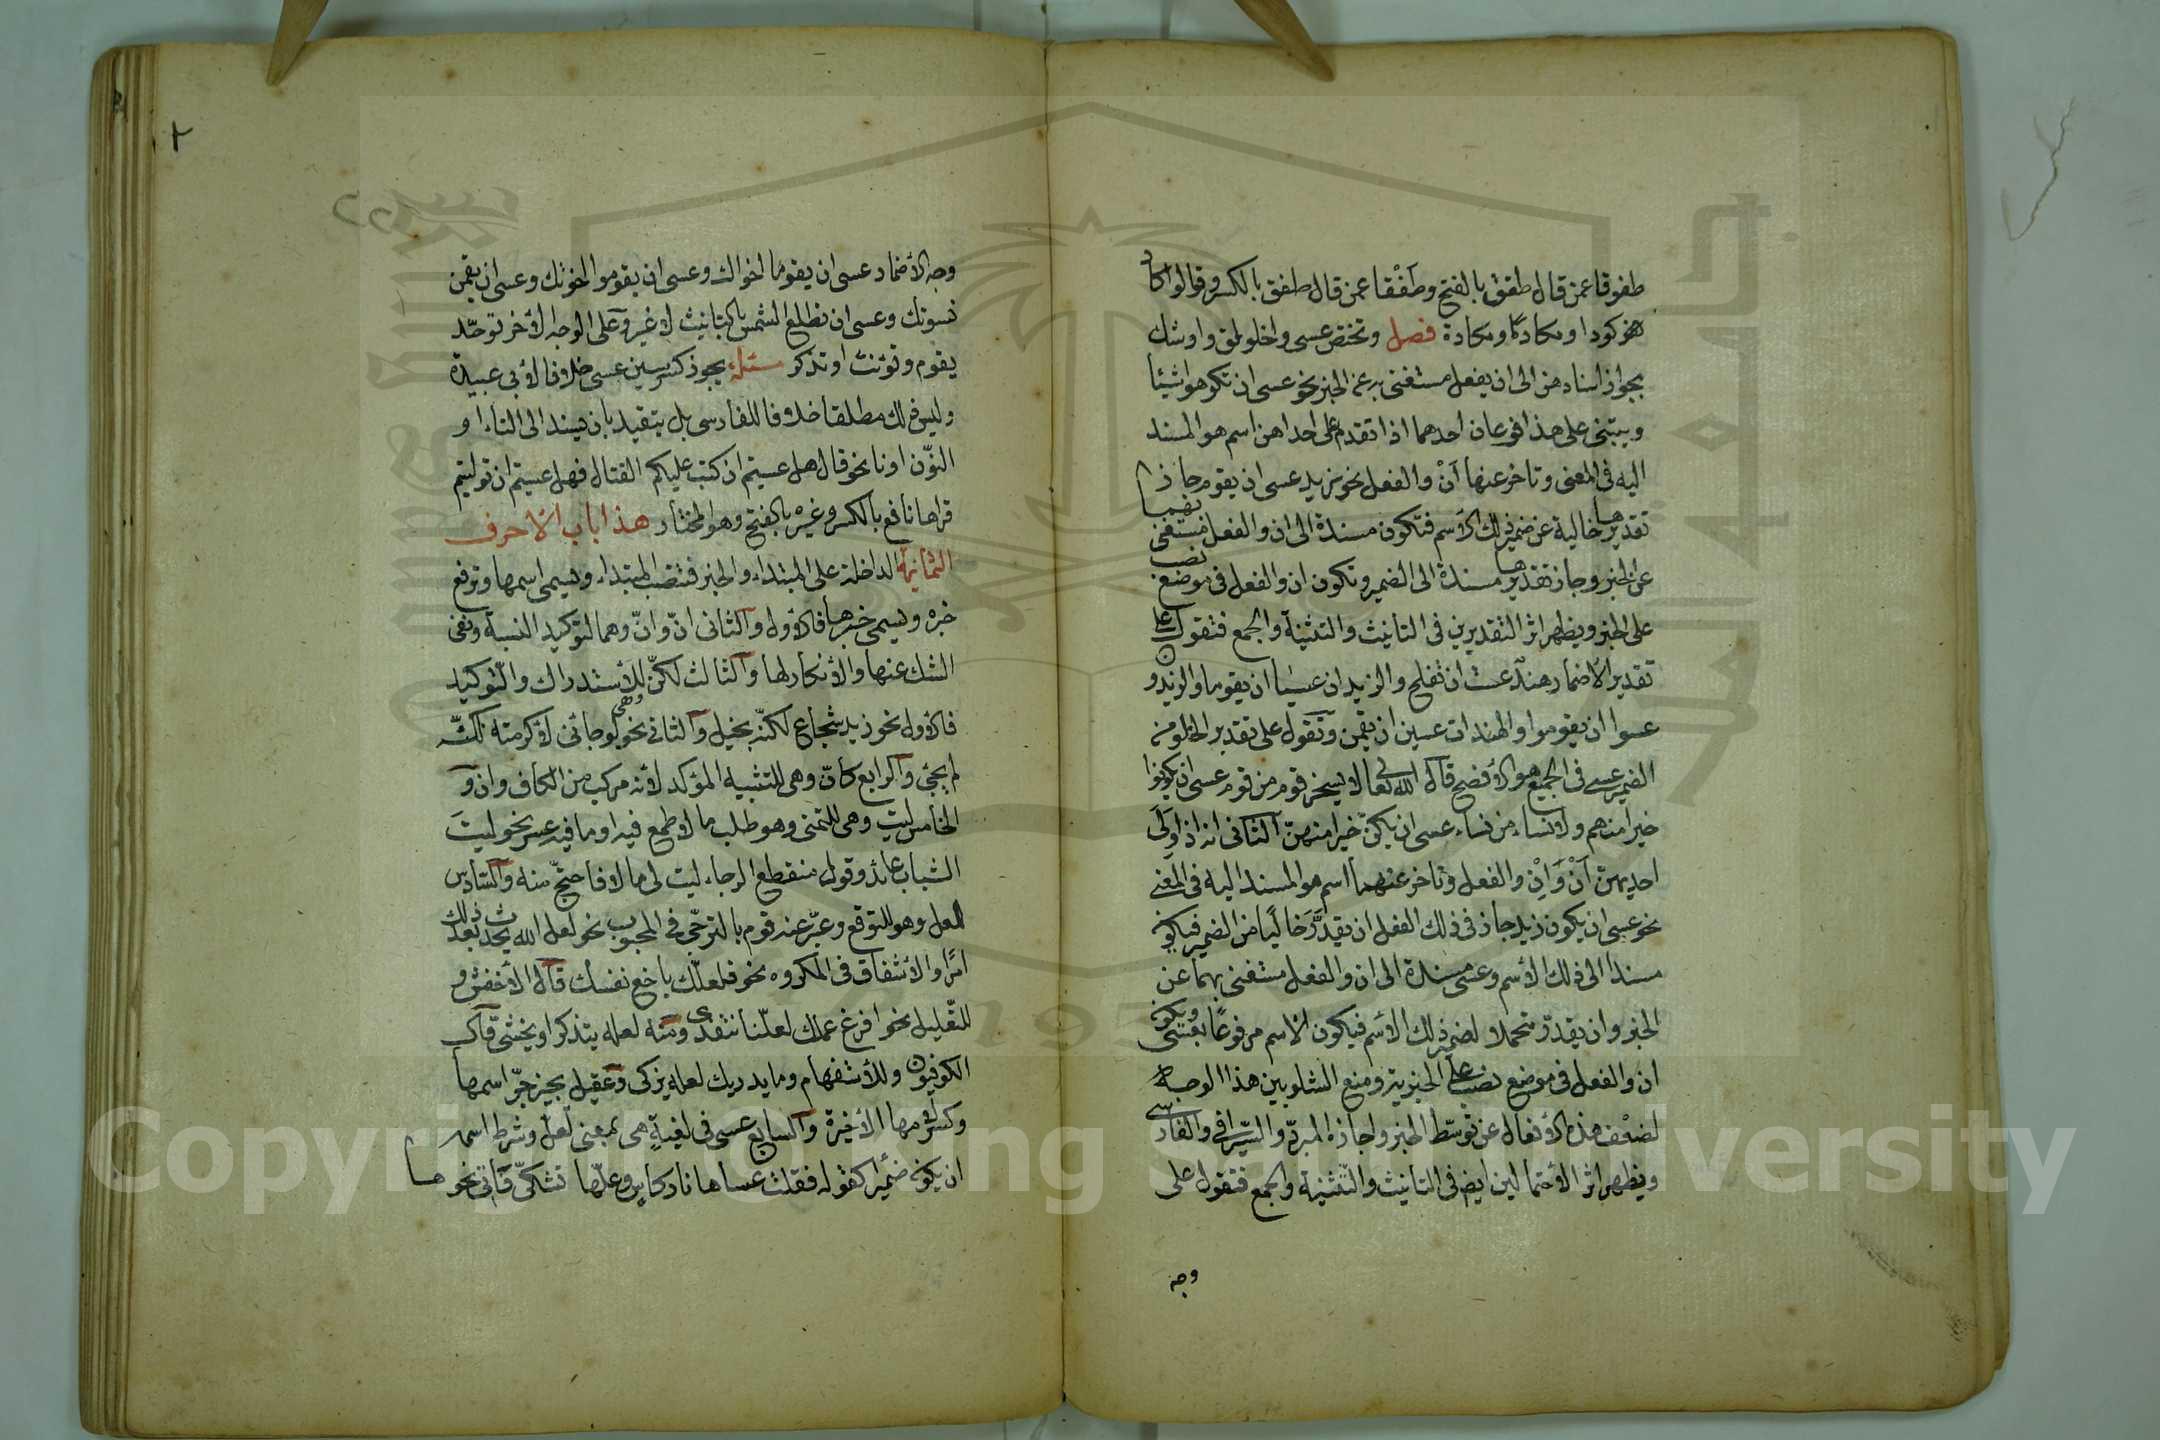 طفوقا عمن قال طفق بالفتح وطفقا عمن قال طفق بالكسر وقالوا كاد
كودا ومكادا ومكادة فصل وتختص عسى واخلولق واوشك
بجواز اسناد هن الى ان يفعل مستغنى به عن الخبر نحو عسى ان تكرهوا شيئا
ويبتنى على هذا فرعان احدهما اذا تقدم على احداهن اسم هو المسند
اليه فى المعنى وتاخر عنها اَنْ والفعل نحو زيد عسى ان يقوم جاز
تقديرها خالية عن ضمير ذلك الاسم فتكون مسندة الى ان والفعل مستغنى بهما
عن الخبر وجاز تقديرها مسندة الى الضمير وتكون ان والفعل فى موضع نصب
على الخبر ويظهر اثر التقديرين فى التانيث والتثنية والجمع فتقول على
تقدير الاضمار هند عست ان تفلح والزيدان عسيا ان يقوما والزيدون
عسوا ان يقوموا والهندات عسين ان يقمن وتقول على تقدير الخلو من
الضمير عسى فى الجميع وهو الافصح قال الله تعالى لا يسخر قوم من قوم عسى ان يكونوا
خيرا منهم ولا نساء من نساء عسى ان يكنّ خيرا منهنّ الثانى انه اذا وَلِىَ
احديهن اَنْ والفعل وتاخر عنهما اسم هو المسند اليه فى المعنى
نحو عسى ان يكون زيد جاز فى ذلك الفعل ان يقدَّر خاليًا من الضمير فيكون
مسندا الى ذلك الاسم وعسى مسندة الى ان والفعل مستغنى بهما عن
الخبر وان يقدّر متحملا لضمير ذلك الاسم فيكون الاسم مرفوعًا بعسى ويكون
ان والفعل فى موضع نصب على الخبرية ومنع الشلوبين هذا الوجه
لضعْف هذه الافعال عن توسّط الخبر واجازه المبرد والسّيرافى والفارسى
ويظهر اثر الاحتمالين ايض فى التانيث والتثنية والجمع فتقول على
وجه
وجه الاضمار عسى ان يقوما اخواك وعسى ان يقوموا اخوتك وعسى ان يقمن
نسوتك وعسى ان تطلع الشمس بالتانيث لا غير وعلى الوجه الاخر توحّد
يقوم وتونث او تذكر مسئلة يجوز كسر سين عسى خلافا لابى عبيدة
وليس ذلك مطلقا خلافا للفارسى بل يتقيد بان يسند الى التاء او
النّون او نا نحو قال هل عسيتم ان كتب عليكم القتال فهل عسيتم ان توليتم
قراها نافع بالكسر وغيره بالفتح وهو المختار هذا باب الاحرف
الثمانية الداخلة على المبتداء والخبر فتنصب المبتداء ويسمى اسمها وترفع
خبره ويسمى خبرها فالاول والثانى انّ وانّ وهما لتوكيد النسبة ونفى
الشك عنها والانكار لها والثالث لكنّ وهى للاستدراك والتّوكيد
فالاول نحو زيد شجاع لكنّه بخيل والثانى نحو لو جاءنى لاكرمته لكنّه
لم يجئ والرابع كانّ وهى للتشبيه المؤكد لانه مركب من الكاف وان و
الخامس ليت وهى للتمنى وهو طلب ما لا طمع فيه او ما فيه عسر نحو ليت
الشباب عائد وقول منقطع الرجاء ليت لى مالا فاحجّ منه والسّادس
لعل وهو للتوقع وعبّر عنه قوم بالترجّى فى المحبوب نحو لعل الله يحدث بعد ذلك
امرًا والاشفاق فى المكروه نحو فلعلّك باخع نفسك قال الاخفش و
للتّعليل نحو افرغ عملك لعلّنا نتغدى ومنه لعله يتذكر او يخشى قال
الكوفيون وللاستفهام وما يدريك لعله يزكى وعقيل يجيز جرّ اسمها
وكسر لامها الاخيرة والسابع عسى فى لغيةٍ هى بمعنى لعلّ وشرط اسمه
ان يكون ضميرا كقوله فقلت عساها نار كاس وعلّها تشكّى فاتى نحوها